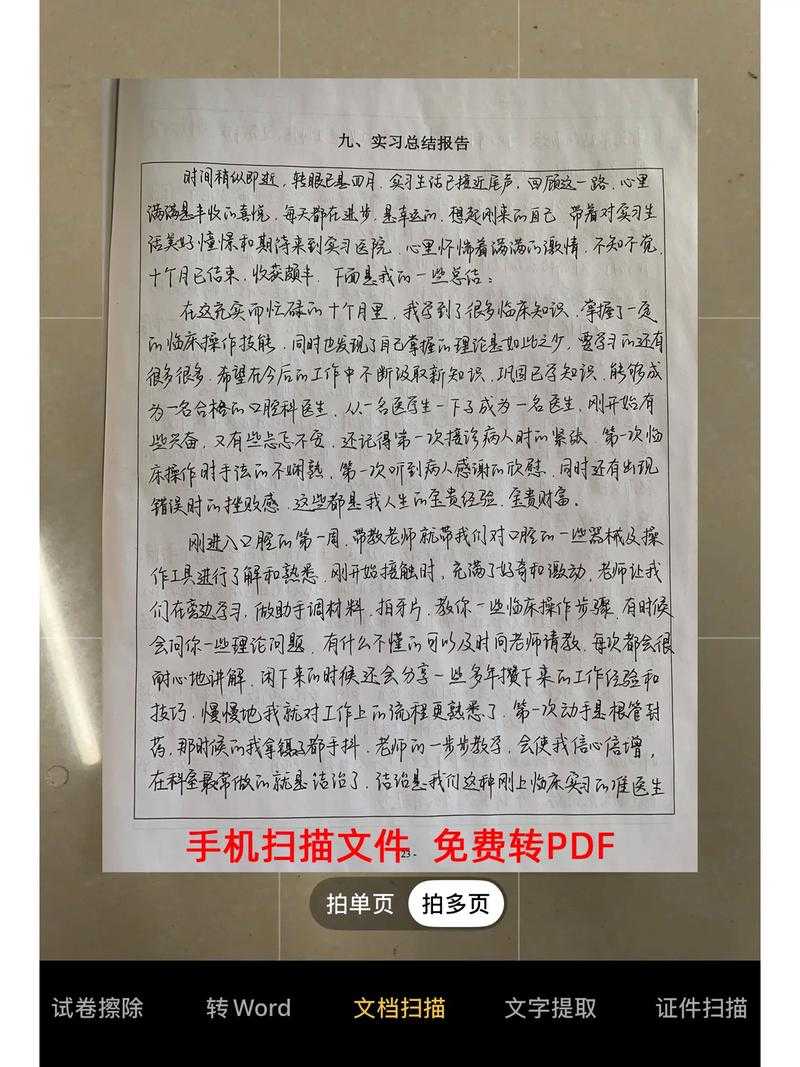 九、实习总结报告
时间稍纵即逝，转眼已是四月，实习生活已接近尾声，回顾这一路，心里
满满是丰收的喜悦，每天都在进步，是幸运的，想起刚来的自己，带着对实习生
活美好憧憬和期待来到实习医院，心里怀惴着满满的激情，不知不觉，
十个月已结束，收获颇丰，下面是我的一些总结：
在这充实而忙碌的十个月里，我学到了很多临床知识，掌握了一定
的临床操作技能，同时也发现了自己掌握的理论是如此之少，要学习的还有
很多很多，希望在今后的工作中不断汲取新知识，巩固已学知识，能够成
为一名合格的口腔科医生，从一名医学生一下子成为一名医生，刚开始有
些兴奋，又有些忐忑不安，还记得第一次接诊病人时的紧张，第一次临
床操作时手法的不娴熟，第一次听到病人感谢的欣慰，同时还有出现
错误时的挫败感，这些都是我人生的宝贵经验，宝贵财富。
刚进入口腔的第一周，带教老师就带我们对口腔的一些器械及操
作工具进行了解和熟悉，刚开始接触时，充满了好奇和激动，老师让我
们在旁边学习，做助手调材料，拍牙片，教你一些临床操作步骤，有时候
会问你一些理论问题，有什么不懂的可以及时向老师请教，每次都会很
耐心地讲解，闲下来的时候还会分享一些多年攒下来的工作经验和
技巧，慢慢地我就对工作上的流程更熟悉了，第一次动手是根管封
药，那时候的我拿镊子都手抖，老师的一步步教学，会使我信心倍增，
在科室最常做的就是洁治了，洁治是我们这种刚上临床实习的准医生
手机扫描文件 免费转PDF
23 -
拍单页 拍多页
试卷擦除 转Word 文档扫描 文字提取 证件扫描